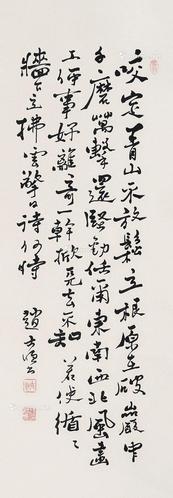 咬定青山不放鬆立根原在破巖中
千磨萬擊還堅勁任爾東南西北風畫
工何事好離奇一幹掀天去不知若使循〻
牆下立拂雲擎日待何時
趙